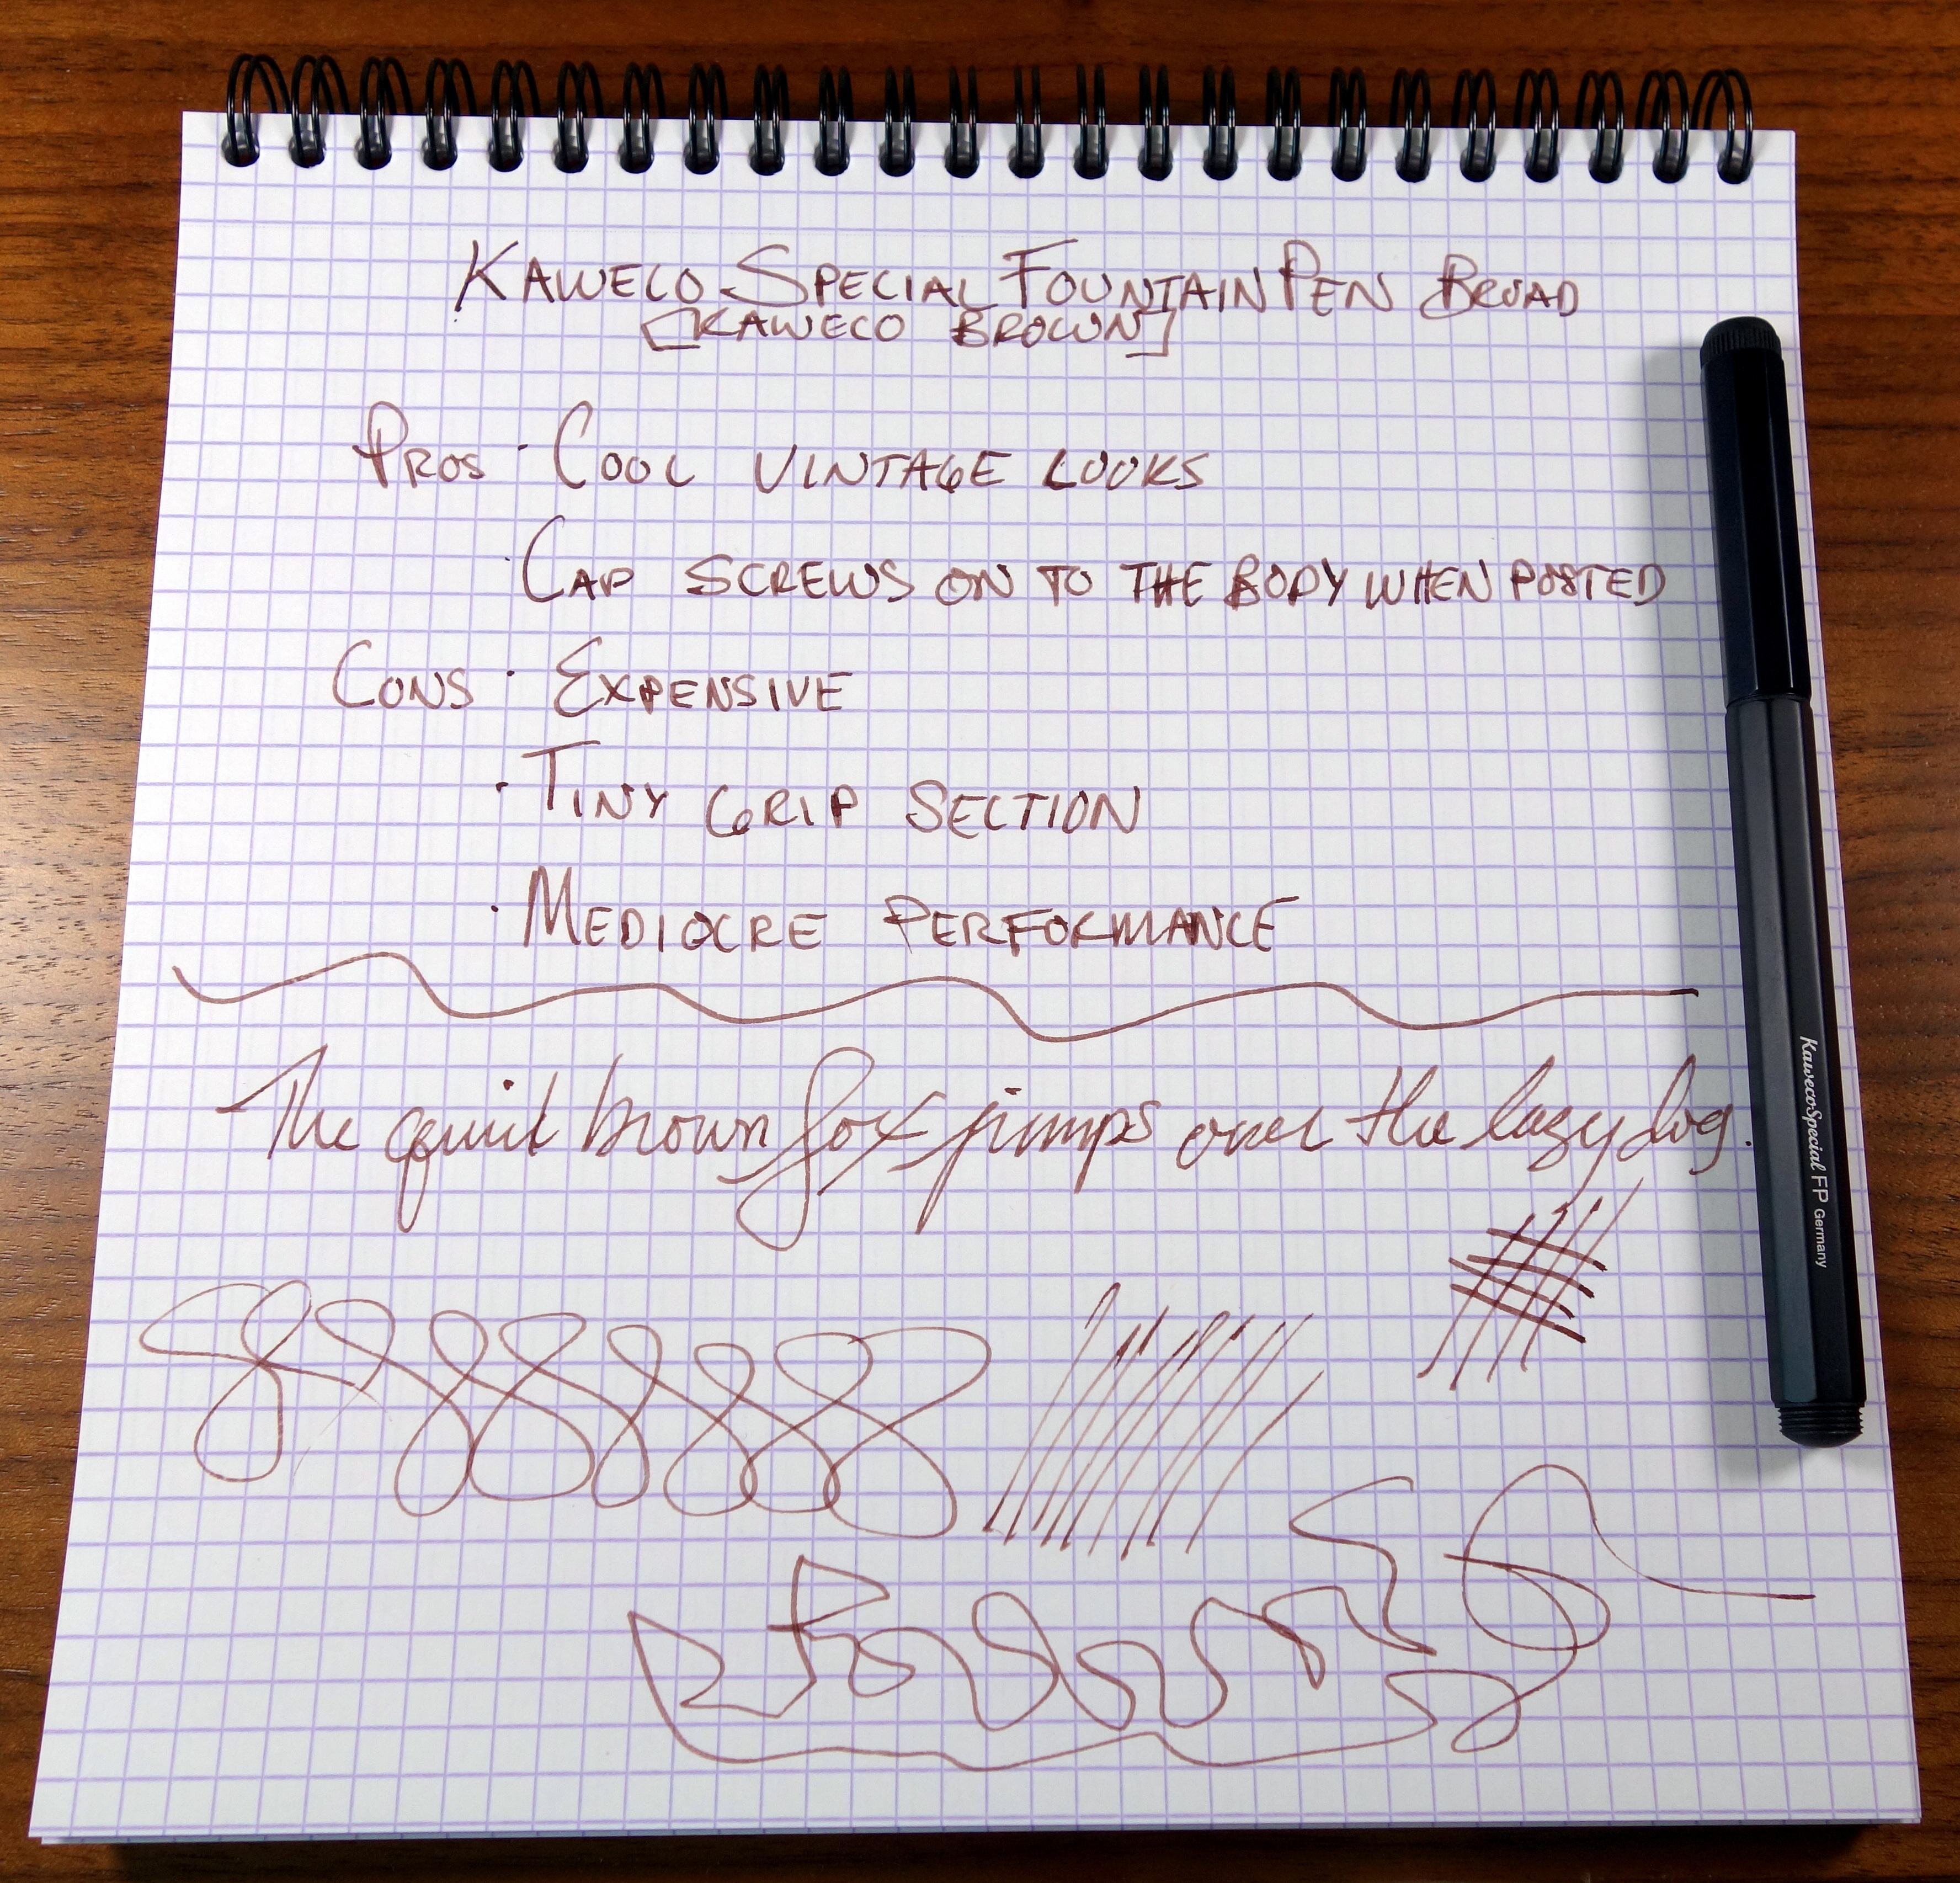 KAWECO SPECIAL FOUNTAIN PEN BROAD
[KAWECO BROWN]
PROS · COOL VINTAGE LOOKS
· CAP SCREWS ON TO THE BODY WHEN POSTED
CONS · EXPENSIVE
· TINY GRIP SECTION
· MEDIOCRE PERFORMANCE
The quick brown fox jumps over the lazy dog.
KawecoSpecial FP Germany